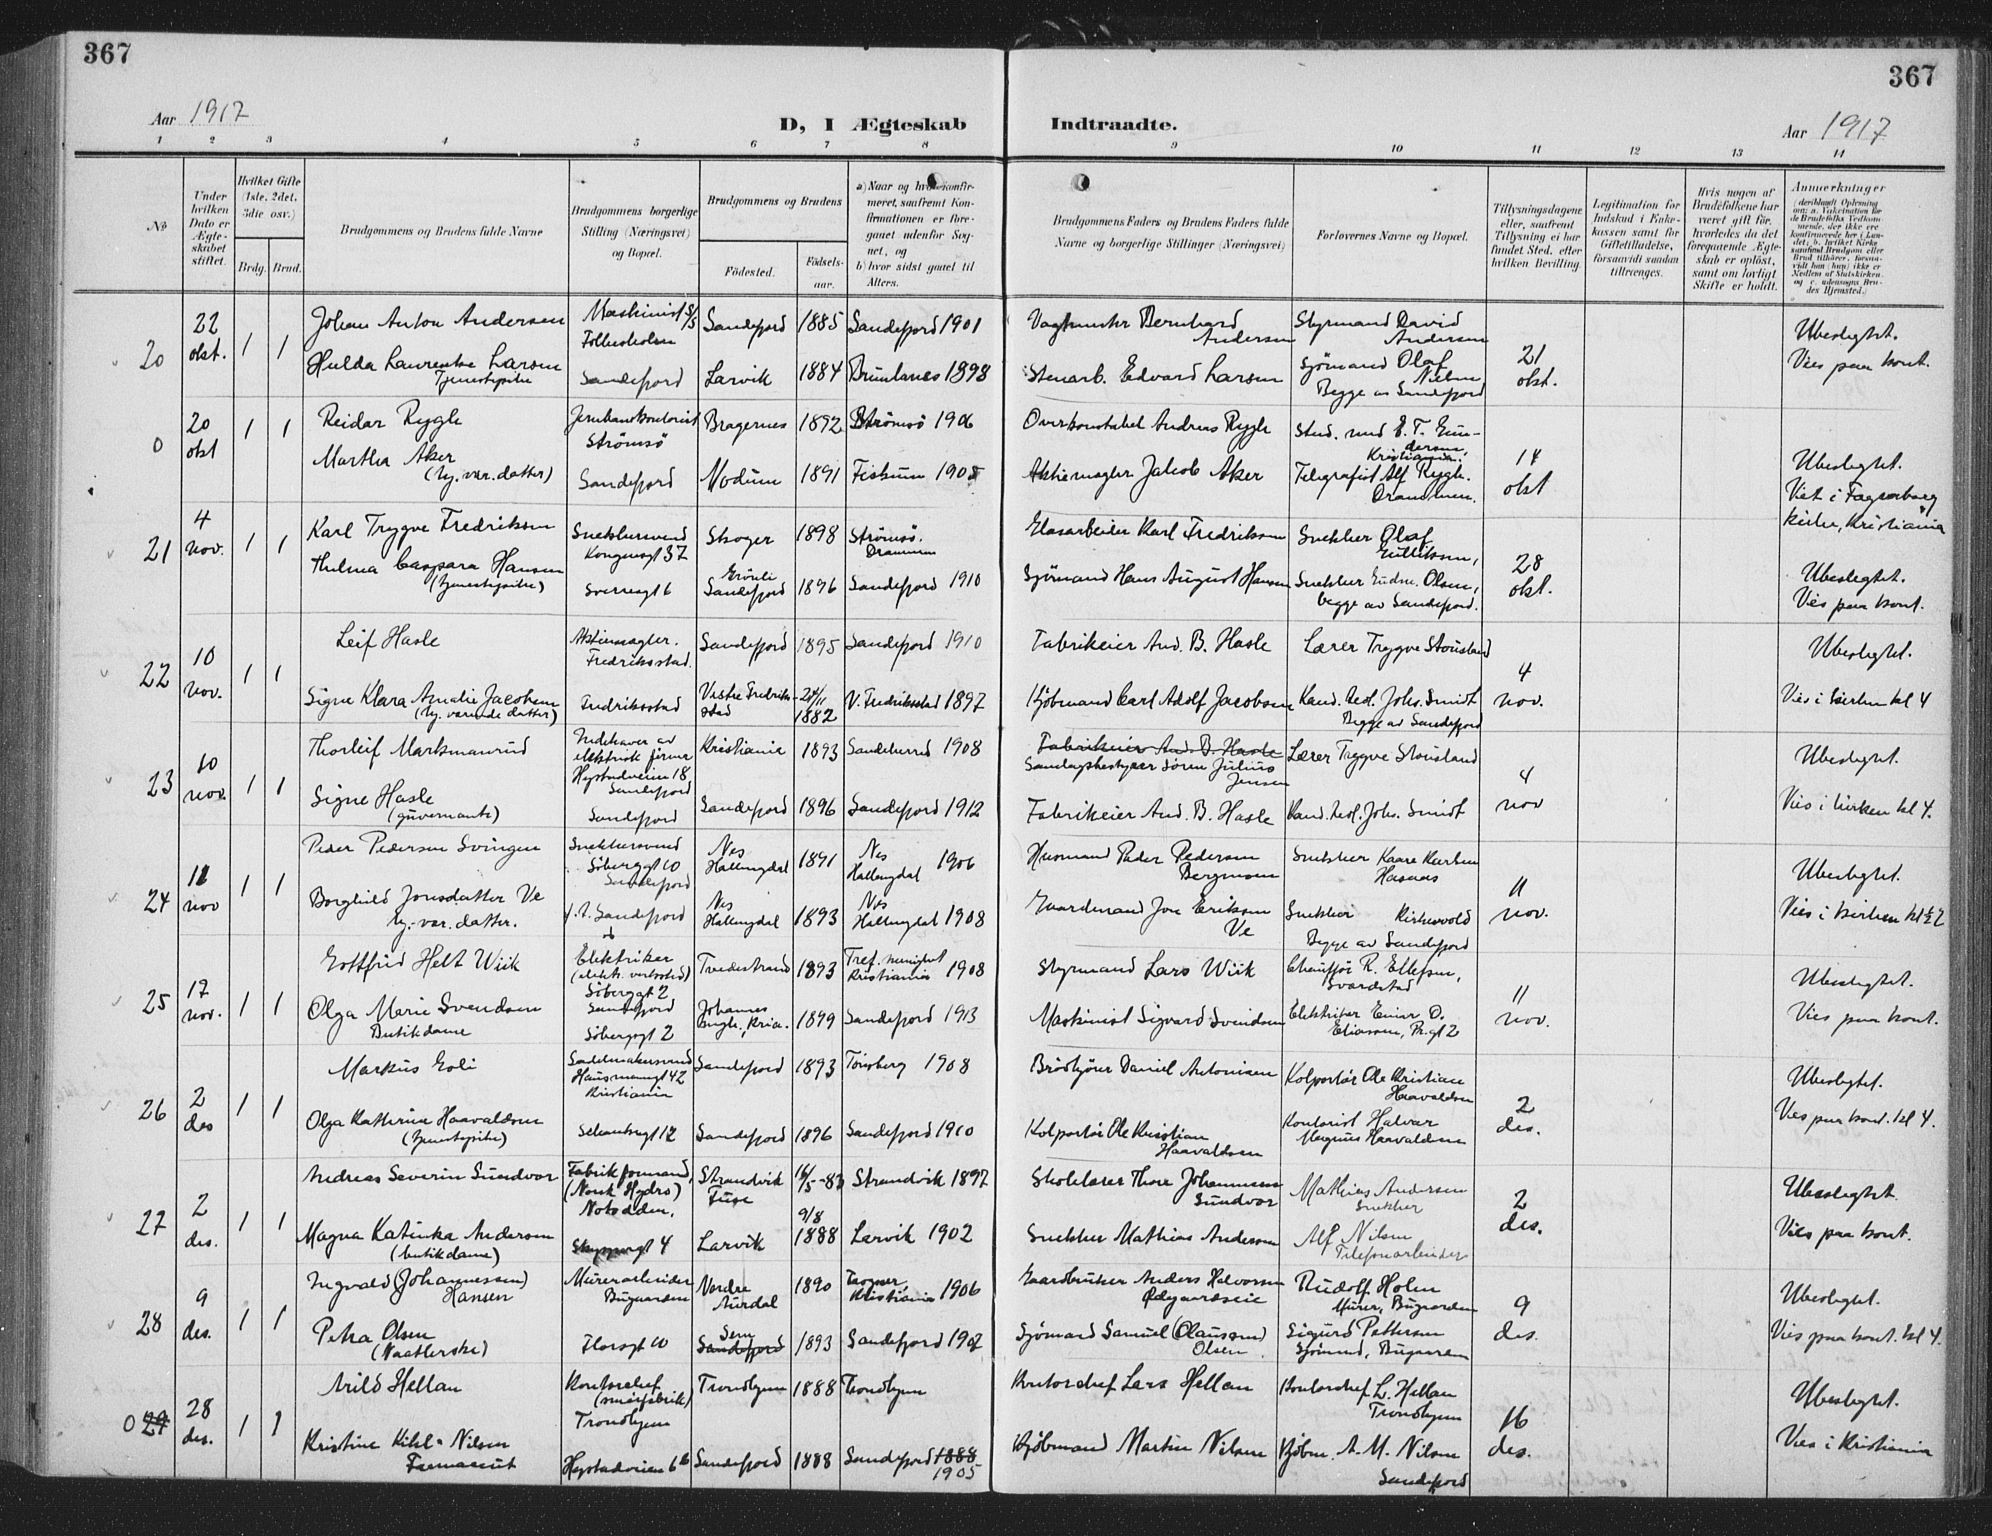 367
367
Aar 1917
D, I Ægteskab
Indtraadte.
Aar 1917
1 2 3 4 5 6 7 8 9 10 11 12 13 14
№
Under hvilken Dato er Ægteskabet stiftet.
Hvilket Gifte (1ste, 2det, 3die osv.)
Brdg.
Brud.
Brudgommens og Brudens fulde Navne
Brudgommens borgerlige Stilling (Næringsvei) og Bopæl.
Brudgommens og Brudens
Födested.
Födsels-aar.
a) Naar og hvor konfirmeret, saafremt Konfirmationen er foregaaet udenfor Sognet, og
b) hvor sidst gaaet til Alters.
Brudgommens Faders og Brudens Faders fulde Navne og borgerlige Stillinger (Næringsvei)
Forlovernes Navne og Bopæl.
Tillysningsdagene eller, saafremt Tillysning ei har fundet Sted, efter hvilken Bevilling.
Legitimation for Indskud i Enkekassen samt for Giftetilladelse, forsaavidt saadan tiltrænges.
Hvis nogen af Brudefolkene har været gift før, hvorledes da det foregaaende Ægteskab er oplöst, samt om lovligt Skifte er holdt.
Anmerkninger
20
22 okt.
1 1
Johan Anton Andersen
Maskinist S/S
Sandefjord 1885 Sandefjord 1901
Bernhard Andersen
Styrmand David Andersen
21 okt.
Ubeslegtet.
Vies paa kont.
Hulda Laurentse Larsen
Tjenestepike
Sandefjord
Larvik 1884 Brunlanes 1898
Stenarb. Edvard Larsen
Sjömand Olaf Nielsen
Begge av Sandefjord
0
20 okt
1 1
Reidar Rygh
Jernbanekontorist
Strömsö
Bragernes 1892 Strömsö 1906
Overkonstabel Andreas Rygh
Stud. med E. T. Gundersen,
Kristiania.
14 okt
Ubeslegtet.
Viet i Fagerborg
kirke, Kristiania
Martha Aker
(hj. vær. datter)
Sandefjord
Modum 1891 Fiskum 1905
Aktiemægler Jakob Aker
Telegrafist Alf Rygh.
Drammen.
21
4 nov.
1 1
Karl Trygve Fredriksen
Snekkersvend
Kongensgt 37
Skoger 1898 Strömsö.
Drammen
Glasarbeider Karl Fredriksen
Snekker Olaf Gulliksen,
28 okt.
Ubeslegtet.
Vies paa kont.
Thelma Caspara Hansen
(tjenestepike)
Sverresgt 6
Sandefjord 1896 Sandefjord 1910
Sjömand Hans August Hansen
Snekker Gudm. Olsen,
begge av Sandefjord.
22
10 nov.
1 1
Leif Hasle
Aktiemægler.
Fredriksstad.
Sandefjord 1895 Sandefjord 1910
Fabrikeier And. B. Hasle
Lærer Trygve Stousland
4 nov.
Ubeslegtet.
Vies i kirken kl 4
Signe Klara Amalie Jacobsen
(hj. værende datter)
Fredriksstad
Vestre Fredriksstad 24/11 1882 V. Fredriksstad 1897
Kjöbmand Carl Adolf Jacobsen
Kand. teol. Johs. Smidt
Begge av Sandefjord
23
10 nov.
1 1
Thorleif Markmanrud
Indehaver av
elektrisk firma
Hystadveien 18
Sandefjord
Kristiania 1893 Sandeherred 1908
Fabrikeier And. B. Hasle
Sören Julius Jensen
Lærer Trygve Stousland
4 nov
Ubeslegtet.
Vies i kirken kl 4.
Signe Hasle
(guvernante)
Sandefjord
Sandefjord 1896 Sandefjord 1912
Fabrikeier And. B. Hasle
Kand. teol. Johs. Smidt
24
11 nov
1 1
Peder Pedersen Svingen
Snekkersvend
Söbergsgt 10
Sandefjord
Nes Hallingdal 1891 Nes Hallingdal 1906
Husmand Peder Pedersen Bergmoen
Snekker Kaare
11 nov.
Ubeslegtet.
Vies i kirken kl ½ 2
Borghild Jonsdatter Ve
hj. vær. datter.
f. t. Sandefjord
Nes Hallingdal 1893 Nes Hallingdal 1908
Gaardmand Jon Eriksen Ve
Snekker Kirkevold
Begge av Sandefjord
25
17 nov.
1 1
Gottfrid Helt Wiik
Elektriker
(elektr. verksted)
Söbergsgt 2
Sandefjord
Tvedestrand 1893 Tref. menighet
Kristiania 1908
Styrmand Lars Wiik
Chauffør R. Ellefsen,
Svarstad
11 nov.
Ubeslegtet.
Vies paa kont.
Olga Marie Svendsen
Butikdame
Söbergsgt 2
Johannes
Kria. 1899 Sandefjord 1913
Maskinist Sigvard Svendsen
Elektriker Einar O.
Eliassen, Pr.gt 2
26
2 des
1 1
Markus Goli
Sadelmakersvend
Hausmannsgt 42
Kristiania
Sandefjord 1893 Tönsberg 1908
Brödkjörer Daniel Antonisen
Kolportör Ole Kristian
Haavaldsen
2 des.
Ubeslegtet.
Vies paa kont. kl 4.
Olga Kathrine Haavaldsen
(tjenestepike)
Sandefjord 1896 Sandefjord 1910
Kolportör Ole Kristian
Haavaldsen
Kontorist Halvar
Magnus Haavaldsen
27
2 des.
1 1
Andreas Severin Sundvor
Fabrikformand,
(Norsk Hydro)
Notodden.
Strandvik
Fuse
16/5-83 Strandvik 1897
Skolelærer Thore Johannessen
Sundvor
Mathias Andersen
Snekker
2 des.
Ubeslegtet.
Vies paa kont.
Magna Katinka Andersen
(butikdame)
Larvik 9/8 1888 Larvik 1902
Snekker Mathias Andersen
Alf Nilsen
Telefonarbeider
28
9 des.
1 1
Ingvald (Johannessen)
Hansen
Murerarbeider
Bugaarden
Nordre
Aurdal 1890 Kristiania 1906
Gaardbruker Anders Halvorsen
Ödegaardseie
Rudolf Holm
Murer, Bugaarden
9 des.
Ubeslegtet.
Vies paa kont. kl 4.
Petra Olsen
Florsgt 10
Sem
Sandefjord 1893 Sandefjord 1907
Sjömand Samuel (Olaussen)
Olsen
Sigurd Pettersen
Sjömand, Bugaarden
0 29
28 des.
1 1
Arild Hellan
Kontorchef
Trondhjem
Trondhjem 1888 Trondhjem
Kontorchef Lars Hellan
Kontorchef L. Hellan
Trondhjem
16 des.
Ubeslegtet.
Vies i Kristiania
Kristine Kihl-Nilsen
Farmaceut
Hystadveien 6b
Sandefjord 1888 Sandefjord 1888
1905
Kjöbmand Martin Nilsen
Kjöbm. A. M. Nilsen
Sandefjord